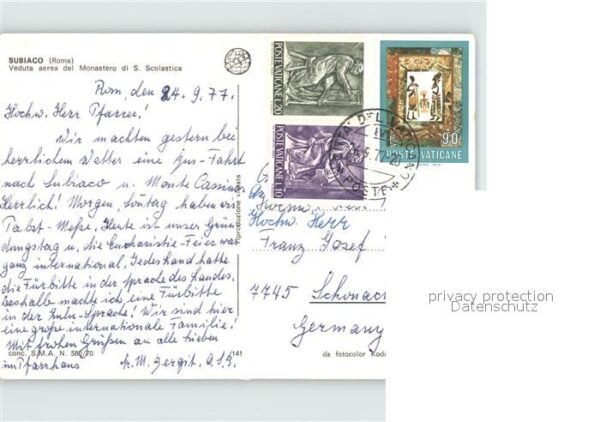 SUBIACO (Roma)
Veduta aerea del Monastero di S. Scolastica
Rom, den 24.9.77.
Hochw. Herr Pfarrer!
Wir machten gestern bei
herrlichem Wetter eine Fahrt
nach Subiaco u. Monte Cassino
Herrlich! Morgen, Sontag haben wir
Pabst-Meße, Heute ist unser Grün
dungstag u. die Eucharistie-Feier war
ganz international. Jedes Land hatte
die Fürbitte in der Sprache des Landes.
Deshalb machte ich eine Fürbitte
in der Zulu-Sprache! Wir sind hier
eine große internationale Familie!
Mit frohen Grüßen an alle lieben
im Pfarrhaus
conc. S.M.A. N. 580/70
141
Riproduzione vietata
POSTE VATICANE L.20
POSTE VATICANE L.10
90
POSTE VATICANE
Hochw. Herr
Franz Josef
7745 Schonach
Germany
da fotocolor Koda
privacy protection
Datenschutz